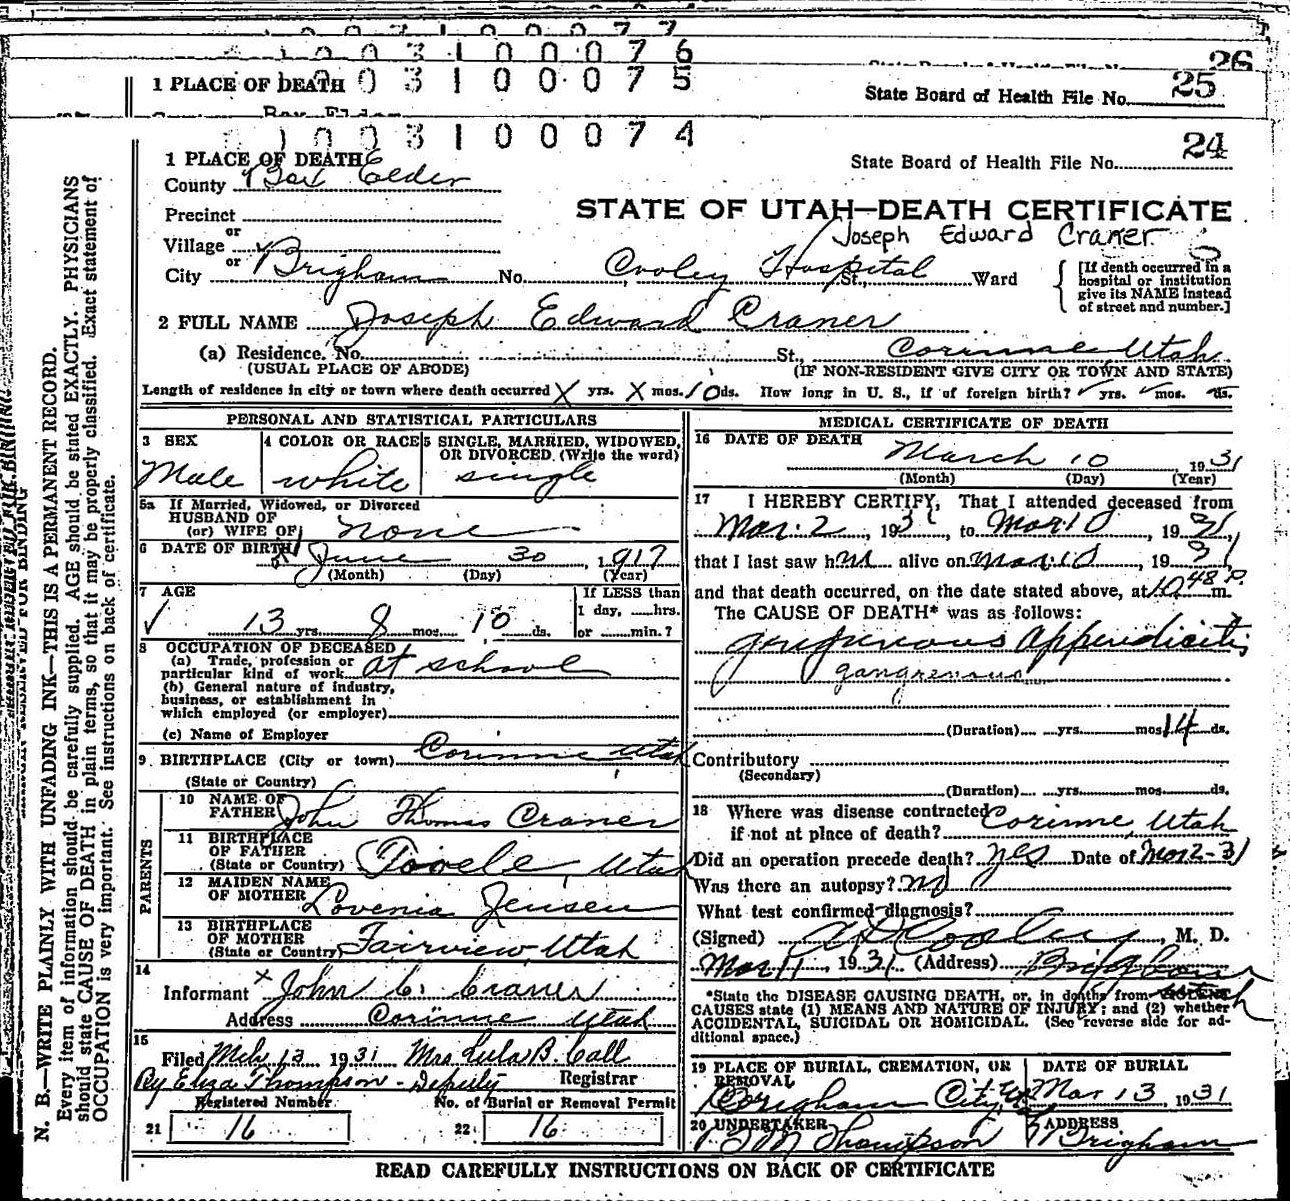 1 0 0 3 1 0 0 0 7 6
26
1 PLACE OF DEATH 0 0 3 1 0 0 0 7 5
State Board of Health File No. 25
Box Elder
1 0 0 3 1 0 0 0 7 4
1 PLACE OF DEATH
State Board of Health File No. 24
County Box Elder
STATE OF UTAH—DEATH CERTIFICATE
Precinct
or
Joseph Edward Craner
Village
or
City Brigham No. Cooley Hospital St., Ward
[If death occurred in a hospital or institution give its NAME instead of street and number.]
2 FULL NAME Joseph Edward Craner
(a) Residence. No. St., Corinne, Utah
(USUAL PLACE OF ABODE) (IF NON-RESIDENT GIVE CITY OR TOWN AND STATE)
Length of residence in city or town where death occurred X yrs. X mos. 10 ds. How long in U. S., if of foreign birth? ✓ yrs. ✓ mos. ds.
PERSONAL AND STATISTICAL PARTICULARS
3 SEX 4 COLOR OR RACE 5 SINGLE, MARRIED, WIDOWED, OR DIVORCED. (Write the word)
Male white single
5a If Married, Widowed, or Divorced
HUSBAND OF
(or) WIFE OF none
6 DATE OF BIRTH June 30, 1917
(Month) (Day) (Year)
7 AGE
If LESS than
1 day, ......hrs.
✓ 13 yrs. 8 mos. 10 ds. or ......min.?
8 OCCUPATION OF DECEASED
(a) Trade, profession or
particular kind of work at school
(b) General nature of industry,
business, or establishment in
which employed (or employer)
(c) Name of Employer
9 BIRTHPLACE (City or town) Corinne Utah
(State or Country)
PARENTS
10 NAME OF
FATHER John Thomas Craner
11 BIRTHPLACE
OF FATHER
(State or Country) Tooele, Utah
12 MAIDEN NAME
OF MOTHER Lovenia Jensen
13 BIRTHPLACE
OF MOTHER
(State or Country) Fairview, Utah
14
Informant x John C. Craner
Address Corinne Utah
15
Filed Mch 13 1931 Mrs Lula B. Call
By Eliza Thompson - Deputy Registrar
Registered Number No. of Burial or Removal Permit
21 16 22 16
MEDICAL CERTIFICATE OF DEATH
16 DATE OF DEATH
March 10 1931
(Month) (Day) (Year)
17 I HEREBY CERTIFY, That I attended deceased from
Mar. 2, 1931 to Mar 10, 1931,
that I last saw him alive on Mar. 10 1931
and that death occurred, on the date stated above, at 10 48 P. m.
The CAUSE OF DEATH* was as follows:
gangrenous appendicitis
gangrenous
(Duration) yrs. mos. 14 ds.
Contributory
(Secondary)
(Duration) yrs. mos. ds.
18 Where was disease contracted
if not at place of death? Corinne, Utah
Did an operation precede death? yes Date of Mar 2-31
Was there an autopsy? no
What test confirmed diagnosis?
(Signed) Cooley, M. D.
Mar 11, 1931 (Address) Brigham
Utah
*State the DISEASE CAUSING DEATH, or, in deaths from VIOLENT
CAUSES state (1) MEANS AND NATURE OF INJURY; and (2) whether
ACCIDENTAL, SUICIDAL OR HOMICIDAL. (See reverse side for ad-
ditional space.)
19 PLACE OF BURIAL, CREMATION, OR REMOVAL DATE OF BURIAL
Brigham City, Ut Mar 13, 1931
20 UNDERTAKER ADDRESS
M Thompson Brigham
READ CAREFULLY INSTRUCTIONS ON BACK OF CERTIFICATE
MARGIN RESERVED FOR BINDING
N. B.—WRITE PLAINLY WITH UNFADING INK—THIS IS A PERMANENT RECORD.
Every item of information should be carefully supplied. AGE should be stated EXACTLY. PHYSICIANS
should state CAUSE OF DEATH in plain terms, so that it may be properly classified. Exact statement of
OCCUPATION is very important. See instructions on back of certificate.